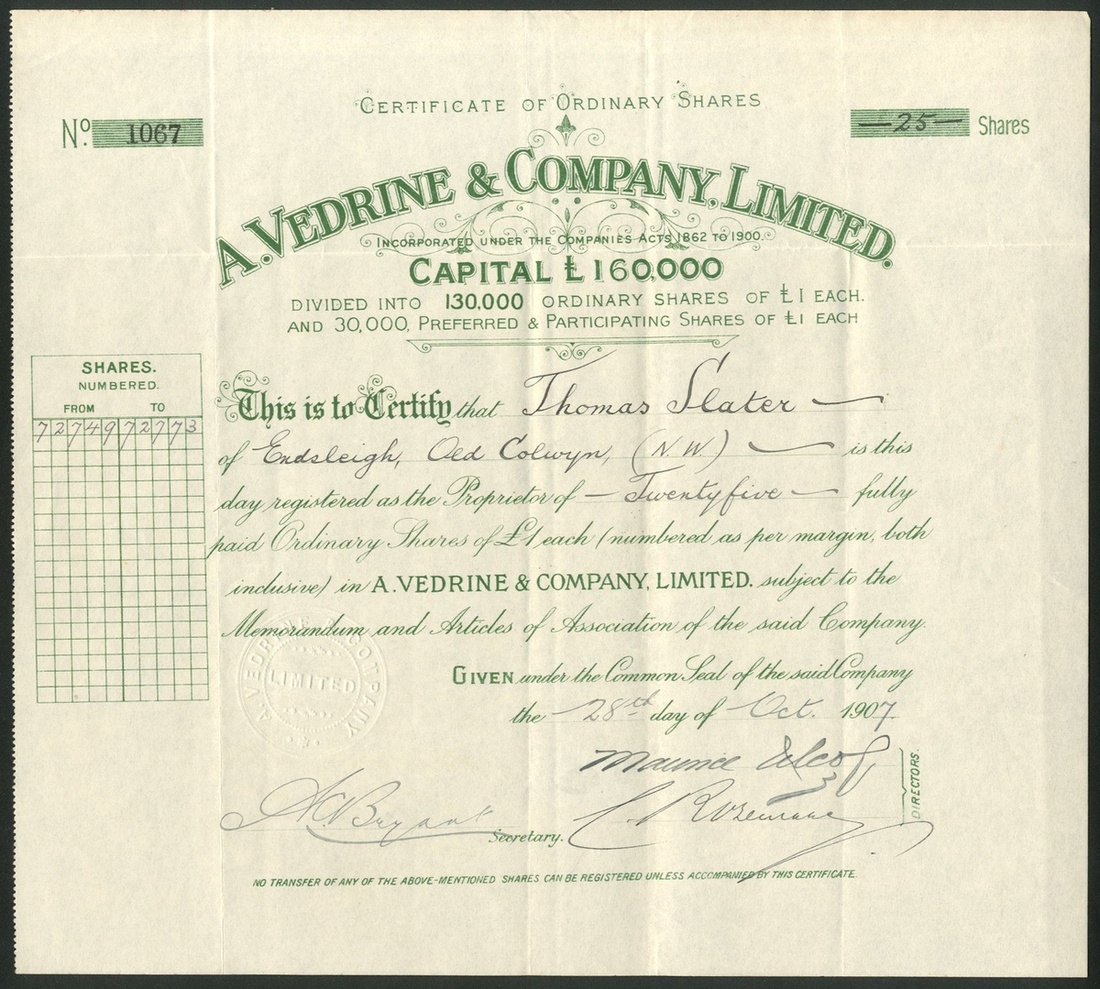 CERTIFICATE OF ORDINARY SHARES
No. 1067
—25— Shares
A. VEDRINE & COMPANY, LIMITED.
INCORPORATED UNDER THE COMPANIES ACTS 1862 TO 1900.
CAPITAL £160,000
DIVIDED INTO 130,000 ORDINARY SHARES OF £1 EACH.
AND 30,000, PREFERRED & PARTICIPATING SHARES OF £1 EACH
SHARES.
NUMBERED.
FROM TO
72749 72773
This is to Certify that Thomas Slater —
of Endsleigh, Old Colwyn, (N.W.) — is this
day registered as the Proprietor of — Twentyfive — fully
paid Ordinary Shares of £1 each (numbered as per margin, both
inclusive) in A. VEDRINE & COMPANY, LIMITED. subject to the
Memorandum and Articles of Association of the said Company.
GIVEN under the Common Seal of the said Company
the 28th day of Oct. 1907.
A. VEDRINE & COMPANY
LIMITED
Maurice
DIRECTORS.
Bryant
Secretary.
NO TRANSFER OF ANY OF THE ABOVE-MENTIONED SHARES CAN BE REGISTERED UNLESS ACCOMPANIED BY THIS CERTIFICATE.